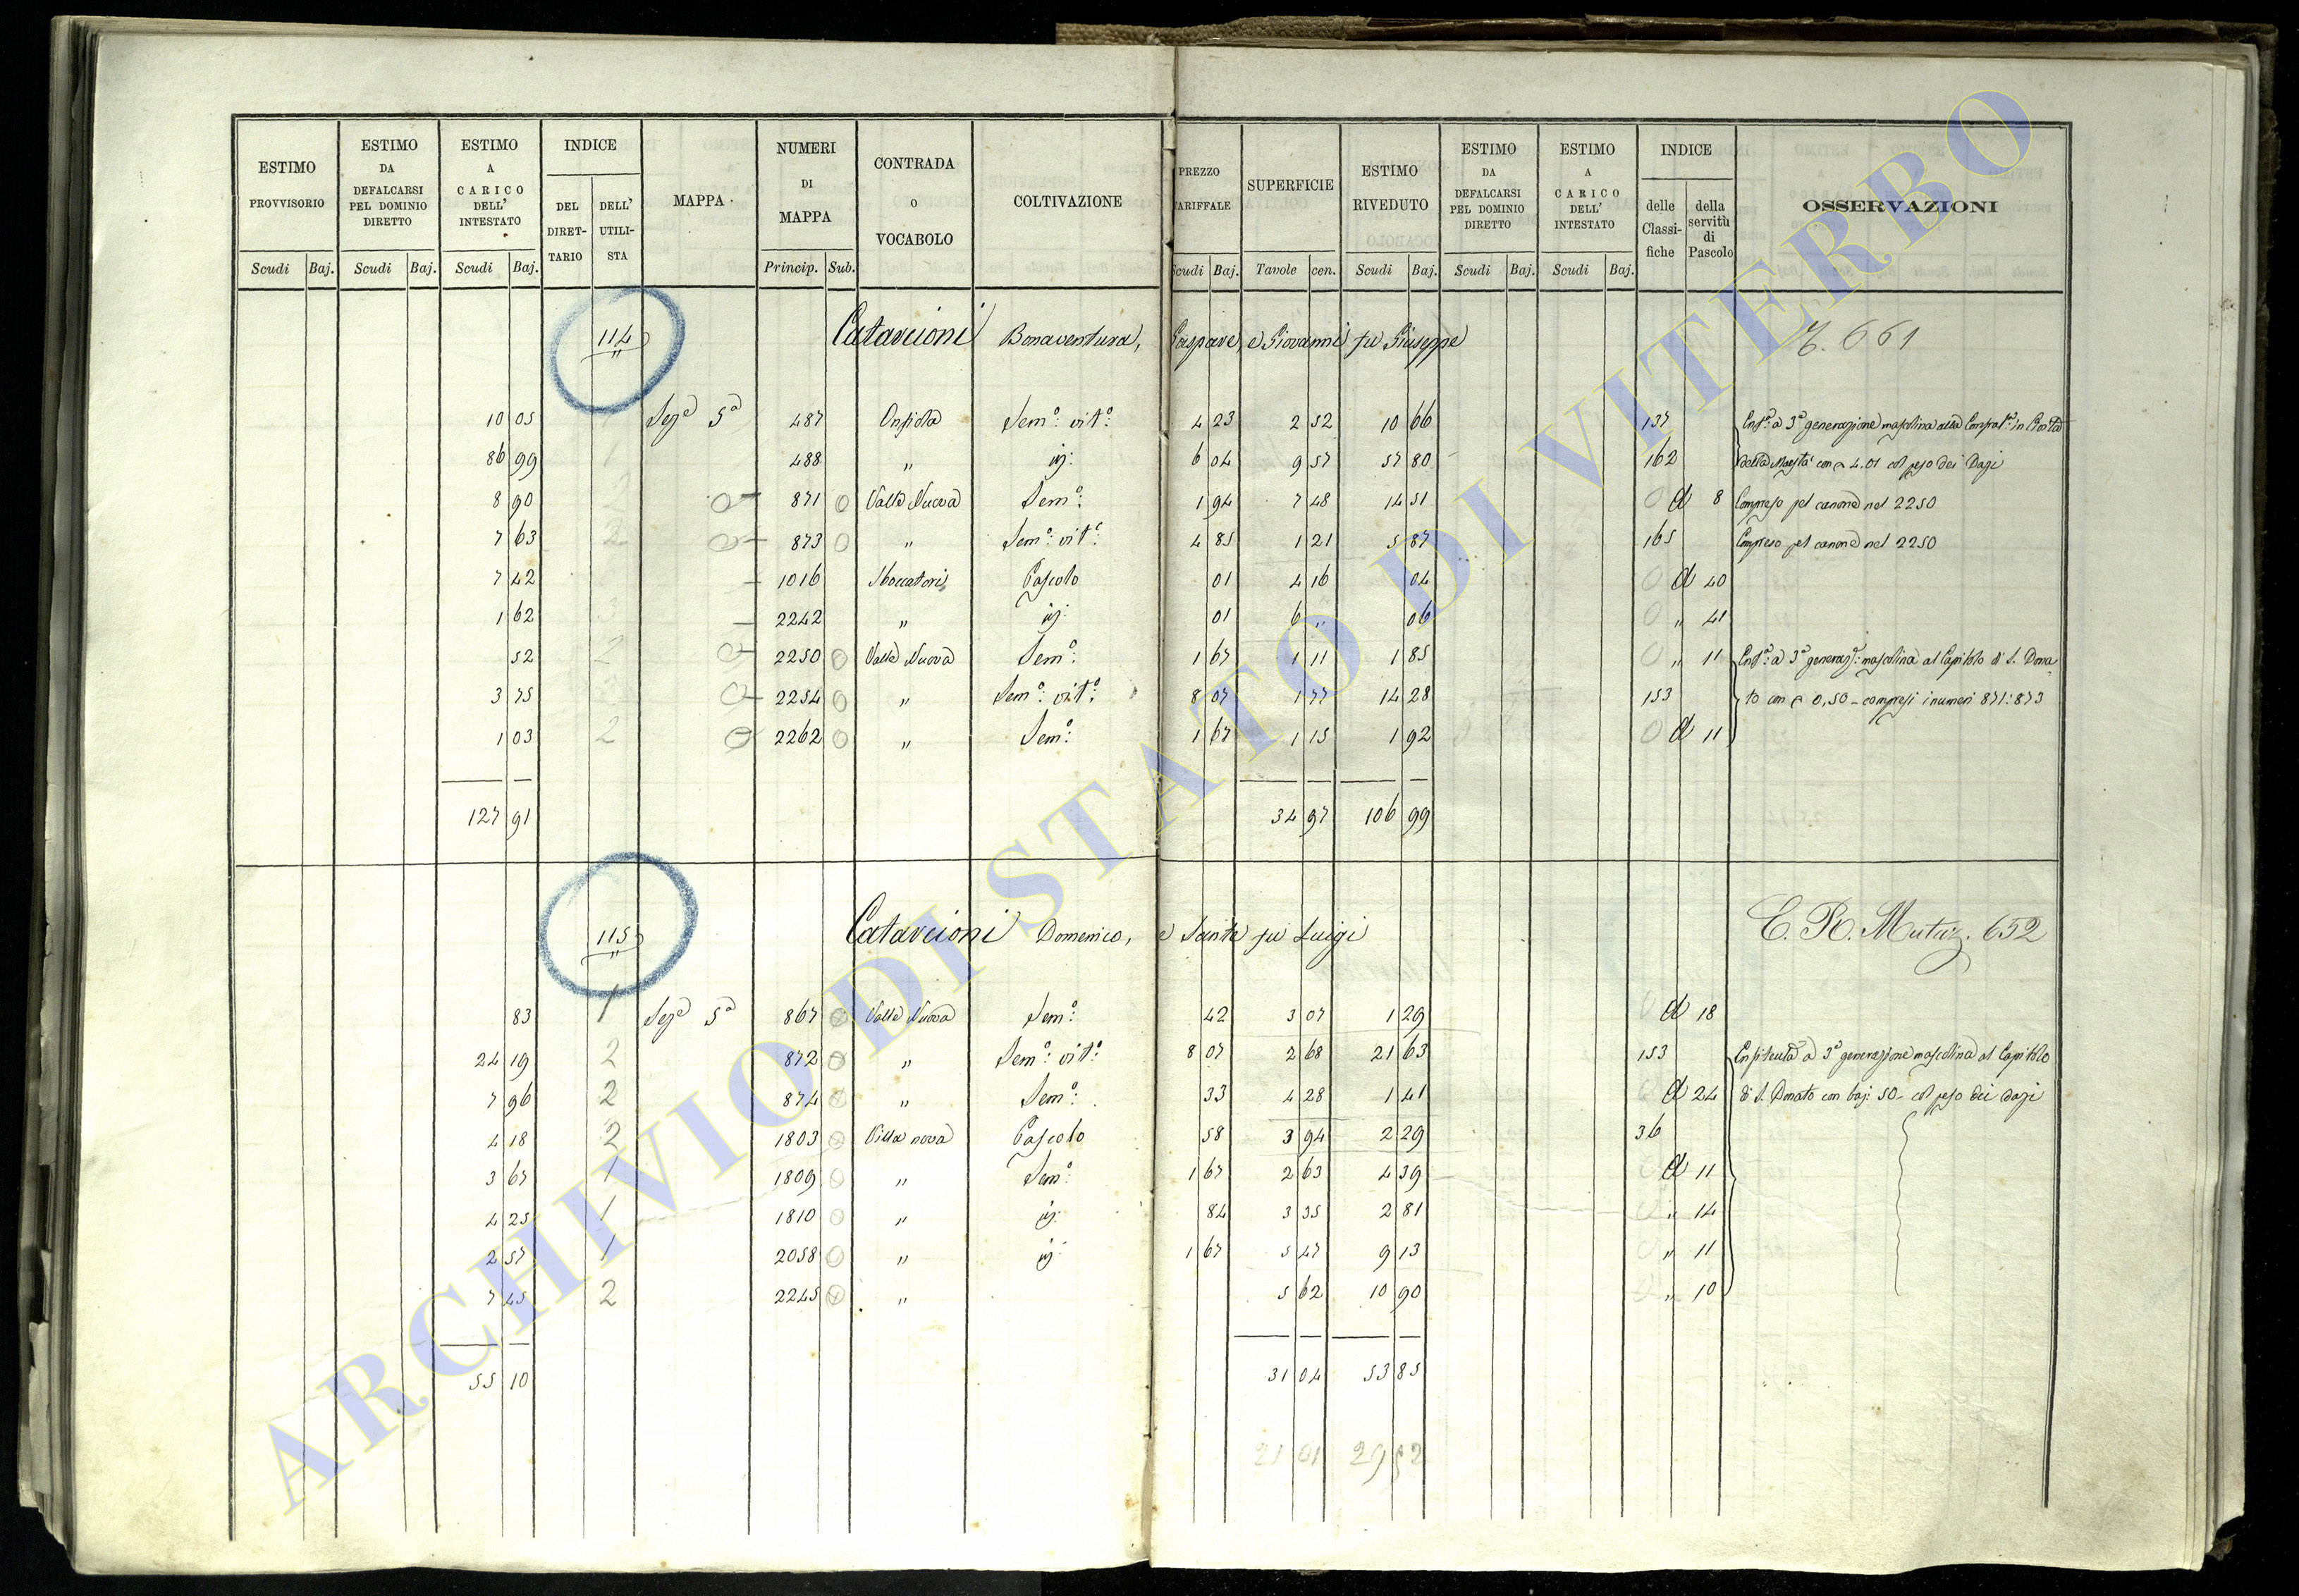 ESTIMO PROVVISORIO | ESTIMO DA DEFALCARSI PEL DOMINIO DIRETTO | ESTIMO A CARICO DELL' INTESTATO | INDICE DEL DIRET-TARIO | DELL' UTILI-STA | MAPPA | NUMERI DI MAPPA | CONTRADA O VOCABOLO | COLTIVAZIONE | PREZZO TARIFFALE | SUPERFICIE | ESTIMO RIVEDUTO | ESTIMO DA DEFALCARSI PEL DOMINIO DIRETTO | ESTIMO A CARICO DELL' INTESTATO | INDICE delle Classi-fiche | della servitù di Pascolo | OSSERVAZIONI
Scudi | Baj. | Scudi | Baj. | Scudi | Baj. | Princip. | Sub. | Scudi | Baj. | Tavole | cen. | Scudi | Baj. | Scudi | Baj. | Scudi | Baj.
114 Catarcioni Bonaventura, Gaspare, e Giovanni fu Giuseppe 661
10 05 Sezе 5a 487 Semo: vito: 4 23 2 52 10 66 137 Enfa: a 3a generazione mascolina alla
86 99 488 " id: 6 04 9 57 57 80 162 della con 4.01 col peso dei Dazi
8 90 871 0 Valle Nuova Semo: 1 94 7 48 14 51 0 d 8 Compreso pel canone nel 2250
7 63 2 873 0 " Semo: vito: 4 85 1 21 5 87 165 Compreso pel canone nel 2250
7 42 1016 Sboccatori Pascolo 01 4 16 04 0 d 40
1 62 2242 " id: 01 6 " 06 0 " 41
52 2 2250 0 Valle Nuova Semo: 1 67 1 11 1 85 0 " 11 Enfa: a 3a generaze: mascolina al Capitolo di S. Dona
3 75 2254 0 " Semo: vito: 8 07 1 77 14 28 153 to con 0,50 - compresi i numeri 871:873
1 03 2 2262 0 " Semo: 1 67 1 15 1 92 0 d 11
127 91 34 97 106 99
115 Catarcioni Domenico, e Sante fu Luigi C. R. Mutaz. 652
83 1 Sezе 5a 867 0 Valle Nuova Semo: 42 3 07 1 29 0 d 18
24 19 2 872 0 " Semo: vito: 8 07 2 68 21 63 153 Enfiteuta a 3a generazione mascolina al Capitolo
7 96 2 874 0 " Semo: 33 4 28 1 41 0 d 24 di S. Donato con baj: 50 - col peso dei dazi
4 18 2 1803 0 Villa nova Pascolo 58 3 94 2 29 36
3 67 1 1809 0 " Semo: 1 67 2 63 4 39 0 d 11
4 25 1 1810 0 " id: 84 3 35 2 81 0 " 14
2 57 1 2058 0 " id: 1 67 5 47 9 13 0 " 11
7 45 2 2245 0 " 5 62 10 90 0 " 10
55 10 31 04 53 85
21 01 29 52
ARCHIVIO DI STATO DI VITERBO